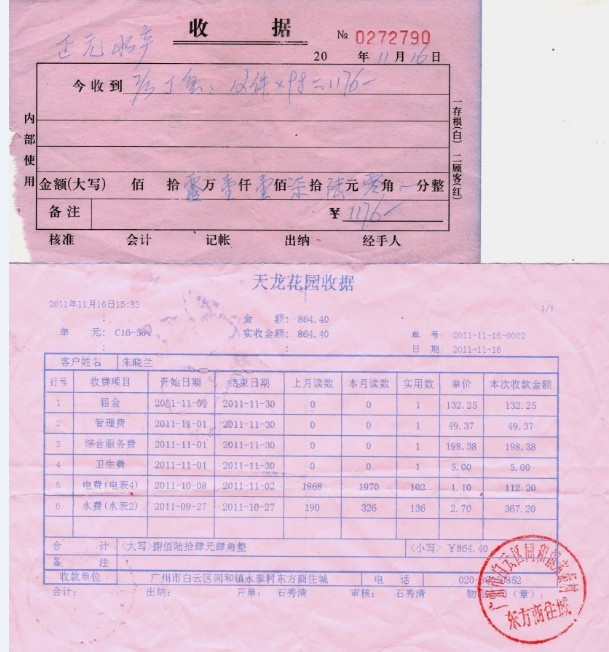 收 据
№ 0272790
正元水产
20 年 11 月 16 日
今收到
=1176-
金额(大写) 佰 拾 万 壹仟 壹佰 柒拾 陆元 零角 分整
备注 ¥ 1176-
核准 会计 记帐 出纳 经手人
内部使用
一存根(白) 二顾客(红)
天龙花园收据
2011年11月16日15:33
1/1
金 额: 864.40
单 元: C16-50
实收金额: 864.40
单 号: 2011-11-16-0002
日 期: 2011-11-16
客户姓名 朱晓兰
行号 收费项目 开始日期 结束日期 上月读数 本月读数 实用数 单价 本次收款金额
1 租金 2011-11-01 2011-11-30 0 0 1 132.25 132.25
2 管理费 2011-11-01 2011-11-30 0 0 1 49.37 49.37
3 综合服务费 2011-11-01 2011-11-30 0 0 1 198.38 198.38
4 卫生费 2011-11-01 2011-11-30 0 0 1 5.00 5.00
5 电费(电表4) 2011-10-08 2011-11-02 1868 1970 102 1.10 112.20
6 水费(水表2) 2011-09-27 2011-10-27 190 326 136 2.70 367.20
合 计 <大写>捌佰陆拾肆元肆角整 <小写>￥864.40
备 注
收款单位 广州市白云区同和镇永泰村东方商住城 电 话 020-
会计: 出纳: 开单: 石秀清 审核: 石秀清 (章):
广州市白云区同和镇永泰村
东方商住城